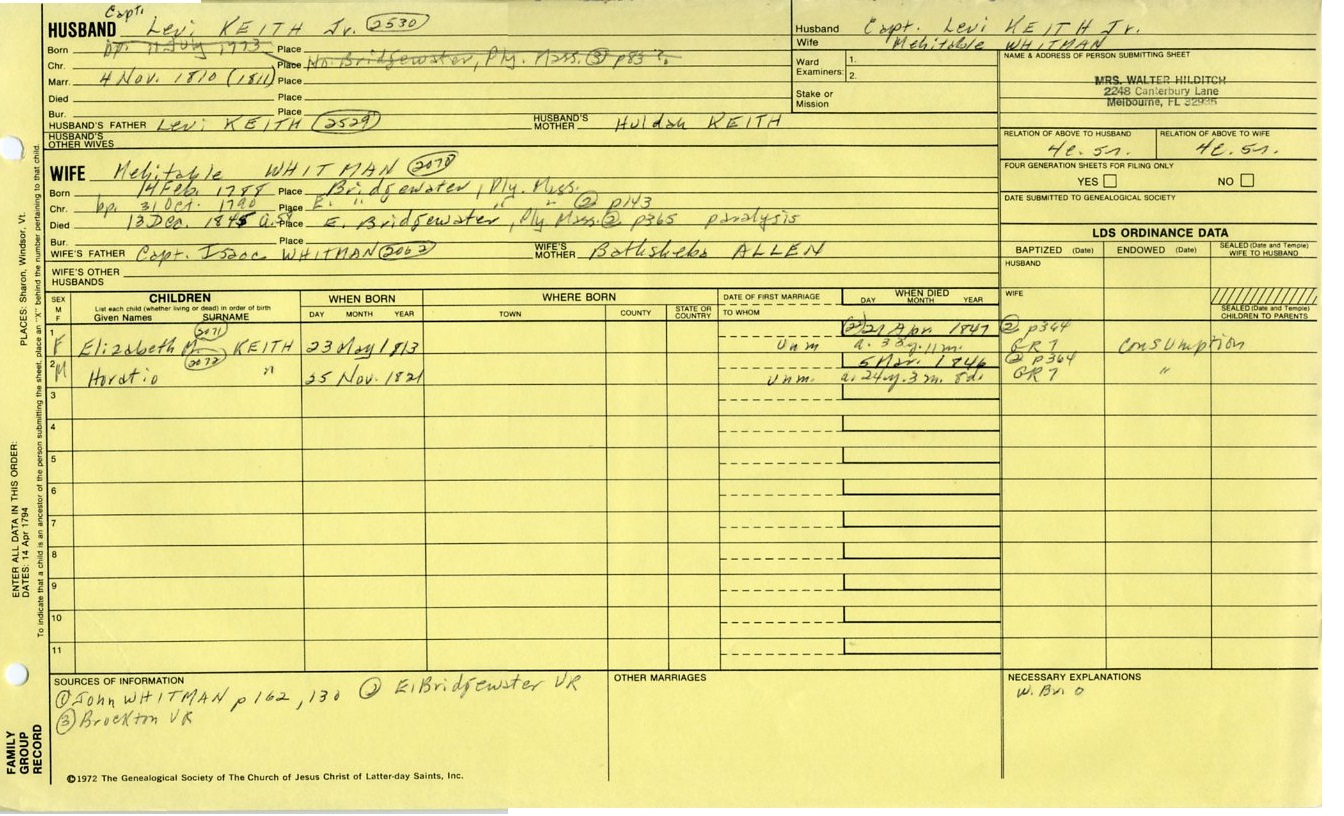 Capt.
HUSBAND Levi KEITH Jr. 2530
Born bp. 11 July 1773 Place
Chr. Place No. Bridgewater, Ply. Mass. ③ p83 ?
Marr. 4 Nov. 1810 (1811) Place
Died Place
Bur. Place
HUSBAND'S FATHER Levi KEITH 2529 HUSBAND'S MOTHER Huldah KEITH
HUSBAND'S OTHER WIVES
WIFE Mehitable WHITMAN 2070
Born 14 Feb. 1788 Place Bridgewater, Ply. Mass.
Chr. bp. 31 Oct. 1790 Place E. " " " ② p143
Died 13 Dec. 1845 a. 59 Place E. Bridgewater, Ply Mass. ② p365 paralysis
Bur. Place
WIFE'S FATHER Capt. Isaac WHITMAN 2062 WIFE'S MOTHER Bathsheba ALLEN
WIFE'S OTHER HUSBANDS
Husband Capt. Levi KEITH Jr.
Wife Mehitable WHITMAN
Ward 1.
Examiners: 2.
Stake or Mission
NAME & ADDRESS OF PERSON SUBMITTING SHEET
MRS. WALTER HILDITCH
2248 Canterbury Lane
Melbourne, FL 32935
RELATION OF ABOVE TO HUSBAND RELATION OF ABOVE TO WIFE
FOUR GENERATION SHEETS FOR FILING ONLY
YES NO
DATE SUBMITTED TO GENEALOGICAL SOCIETY
LDS ORDINANCE DATA
BAPTIZED (Date) ENDOWED (Date) SEALED (Date and Temple) WIFE TO HUSBAND
HUSBAND
WIFE
SEALED (Date and Temple) CHILDREN TO PARENTS
SEX M F
CHILDREN
List each child (whether living or dead) in order of birth
Given Names SURNAME
WHEN BORN
DAY MONTH YEAR
WHERE BORN
TOWN COUNTY STATE OR COUNTRY
DATE OF FIRST MARRIAGE
TO WHOM
WHEN DIED
DAY MONTH YEAR
1 2071 ② 21 Apr 1847 ② p364
F Elizabeth M. KEITH 23 May 1813 Unm a. 33y. 11 m. GR7 consumption
2 2072 5 Mar. 1846 ② p364
M Horatio " 25 Nov. 1821 Unm. a. 24 y. 3 m. 8d. GR7 "
3
4
5
6
7
8
9
10
11
SOURCES OF INFORMATION
① John WHITMAN p 162, 130 ② E. Bridgewater VR
③ Brockton VR
OTHER MARRIAGES
NECESSARY EXPLANATIONS
W. Br. O
©1972 The Genealogical Society of The Church of Jesus Christ of Latter-day Saints, Inc.
FAMILY GROUP RECORD
ENTER ALL DATA IN THIS ORDER:
DATES: 14 Apr 1794
PLACES: Sharon, Windsor, Vt.
To indicate that a child is an ancestor of the person submitting the sheet, place an "X" behind the number pertaining to that child.